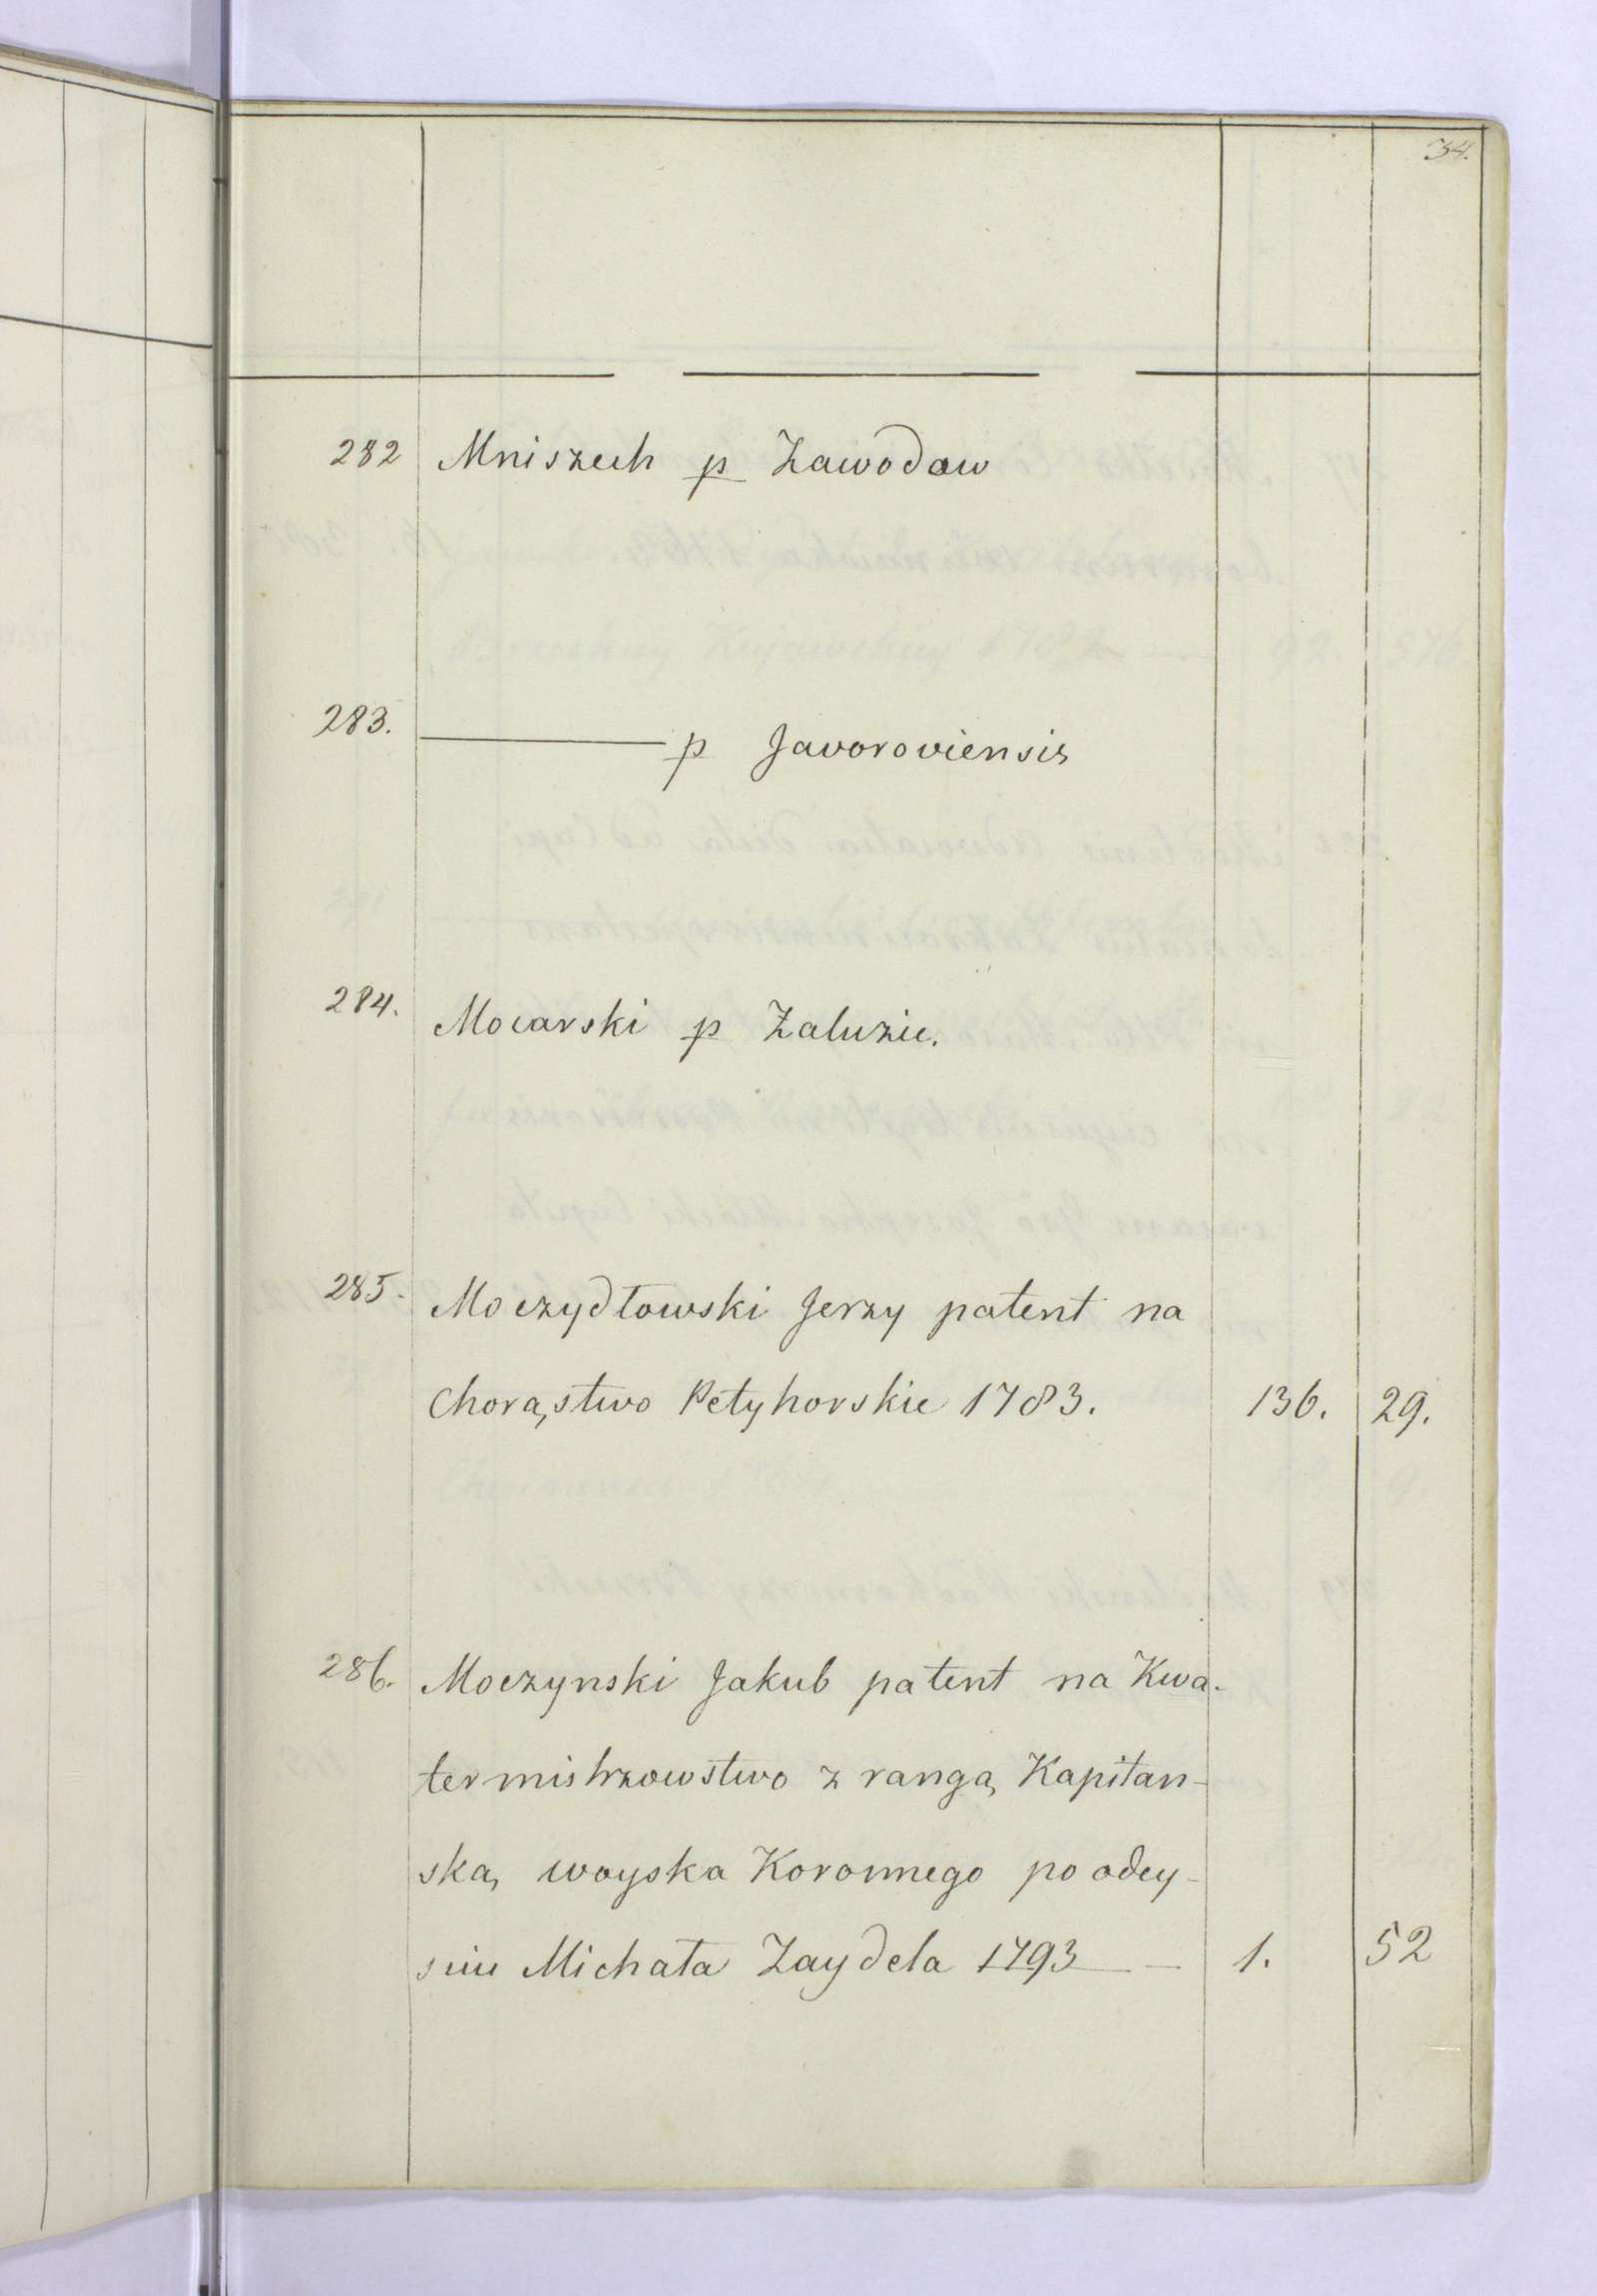 34.
282 Mniszech p Zawodow
283. ——— p Javoroviensis
284. Mocarski p Zaluzie.
285. Moczydłowski Jerzy patent na
Chorąstwo Petyhorskie 1783. 136. 29.
286. Moczynski Jakub patent na Kwa-
termistrzowstwo z rangą Kapitan-
ską woyska Koronnego po odey-
sciu Michała Zaydela 1793 — — 1. 52